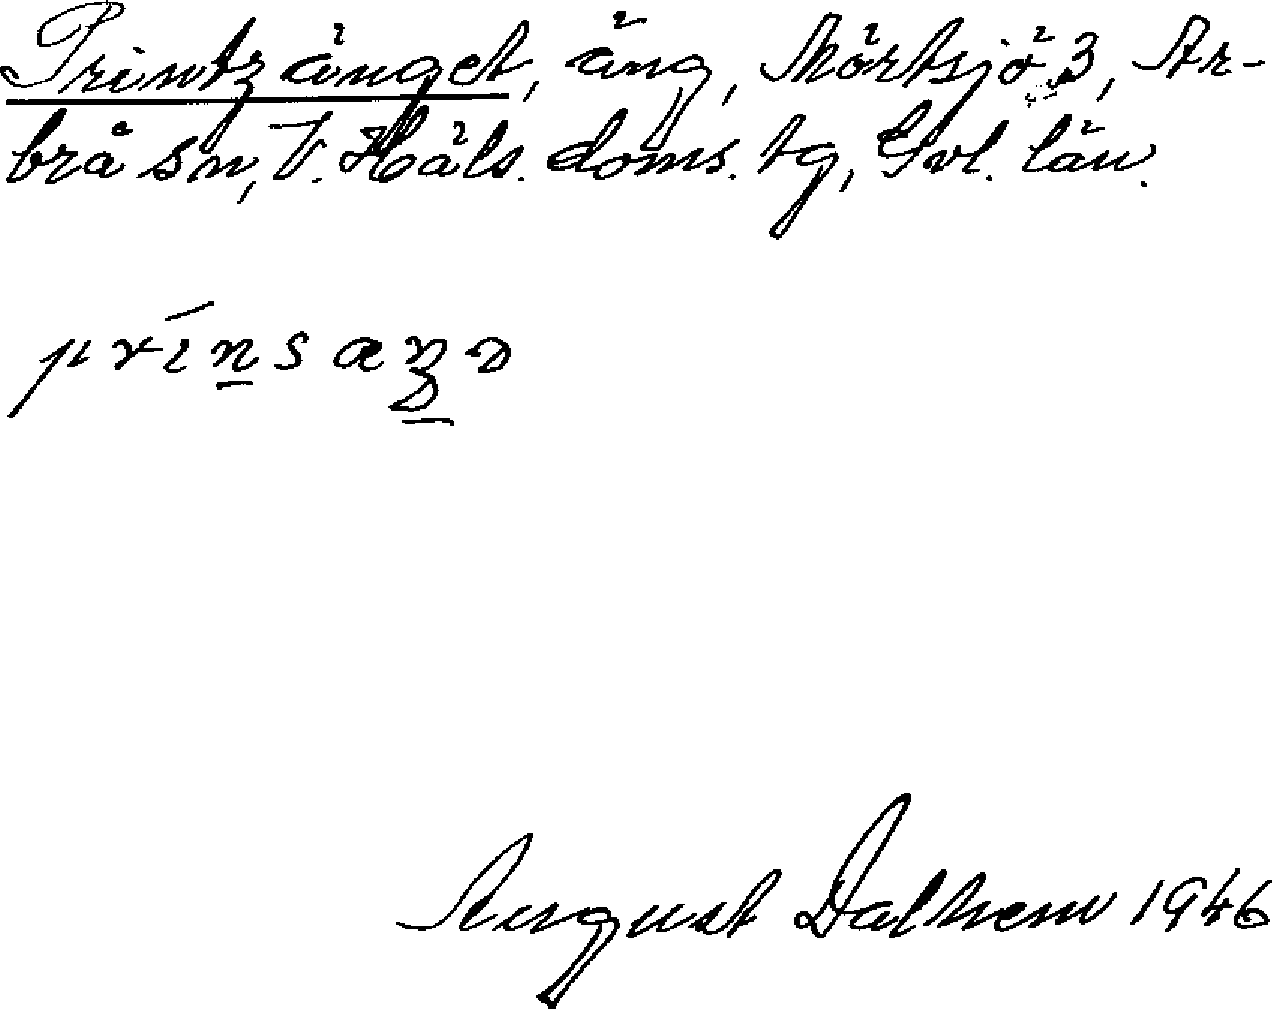 Printzänget, äng, Mörtsjö 3, Ar-
brå sn, V. Häls. doms. tg, Gvl. län.
August Dalhem 1946